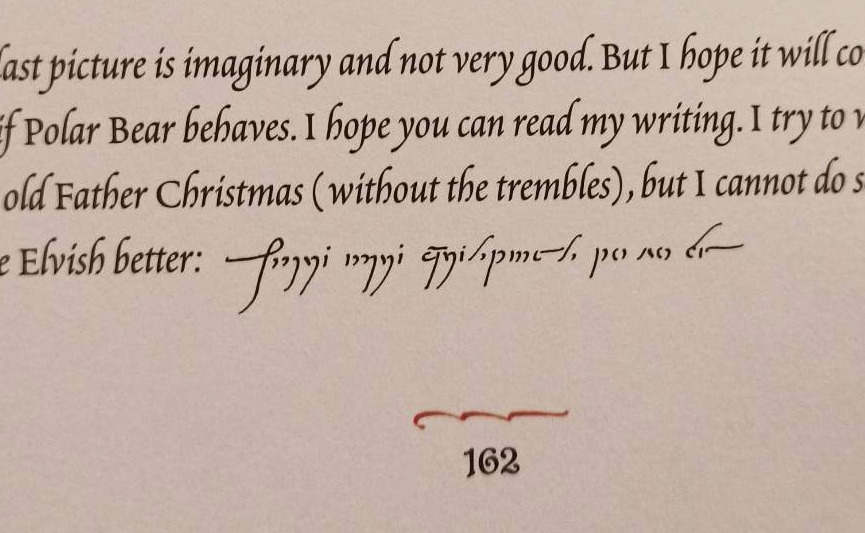 last picture is imaginary and not very good. But I hope it will co
if Polar Bear behaves. I hope you can read my writing. I try to w
old Father Christmas (without the trembles), but I cannot do s
e Elvish better:
162